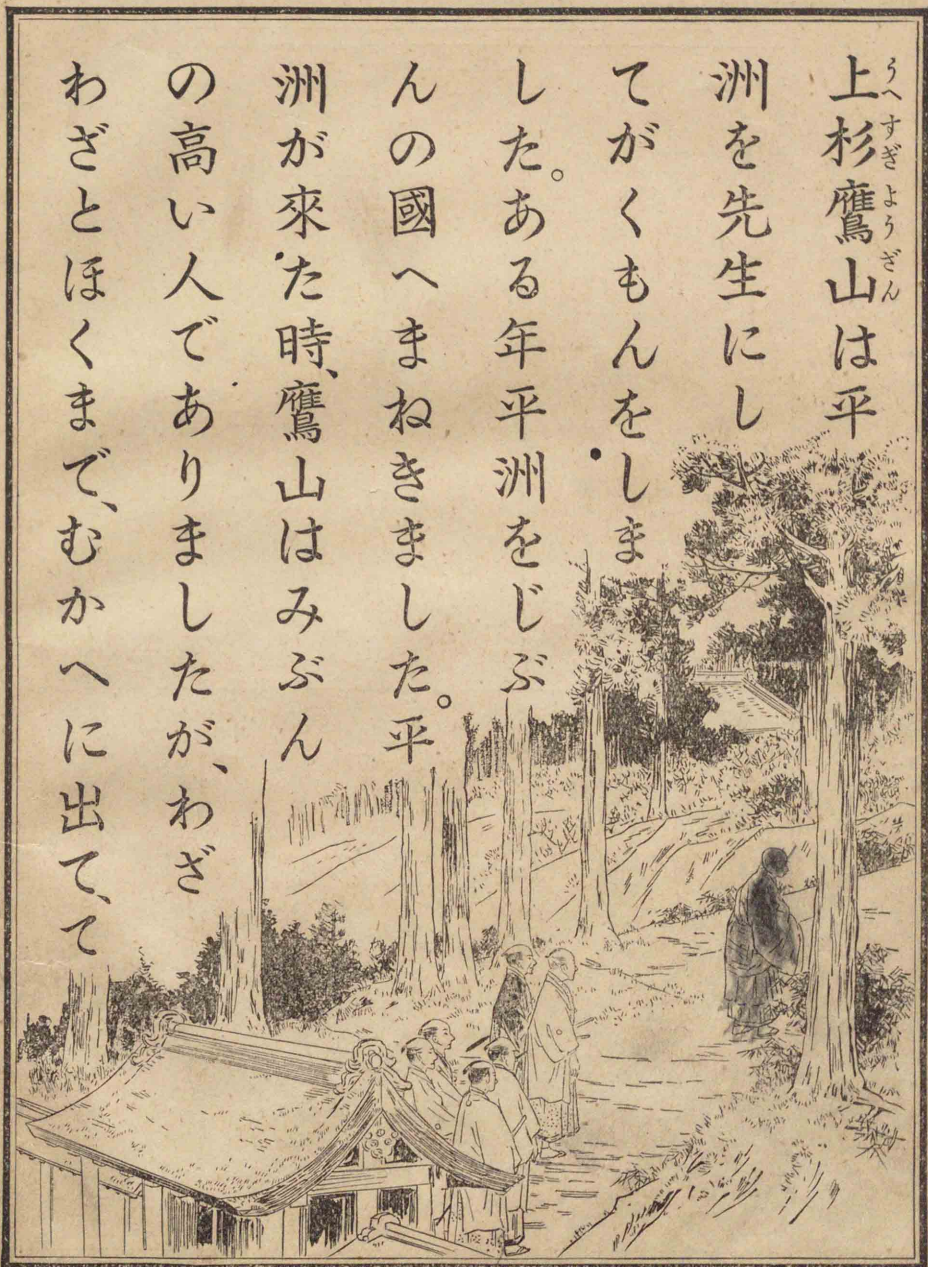 上杉鷹山は平
洲を先生にし
てがくもんをしま
した。ある年平洲をじぶ
んの國へまねきました。平
洲が來た時、鷹山はみぶん
の高い人でありましたが、わざ
わざとほくまで、むかへに出て、て
うへすぎようざん